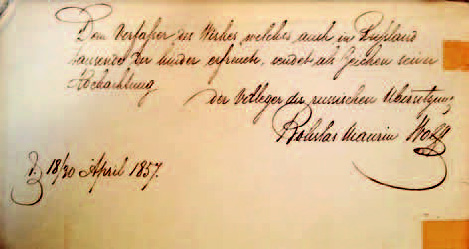 Dem Verfasser des Werkes welches auch in Rußland
tausende der Kinder erfreute, sendet als Zeichen seiner
Hochachtung
der Verleger der russischen Übersetzung
Boleslas Maurice Wolff
18/30 April 1857.